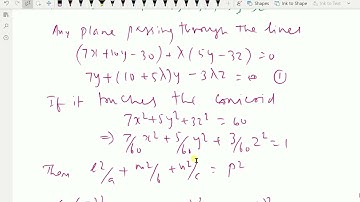 Any plane passing through the lines
(7x+10y-30) + λ(5y-3z) = 0
7y + (10+5λ)y - 3λz = 0 ①
If it touches the conicoid
7x²+5y²+3z² = 60
⇒ 7/60 x² + 5/60 y² + 3/60 z² = 1
Then l²/a + m²/b + n²/c = p²